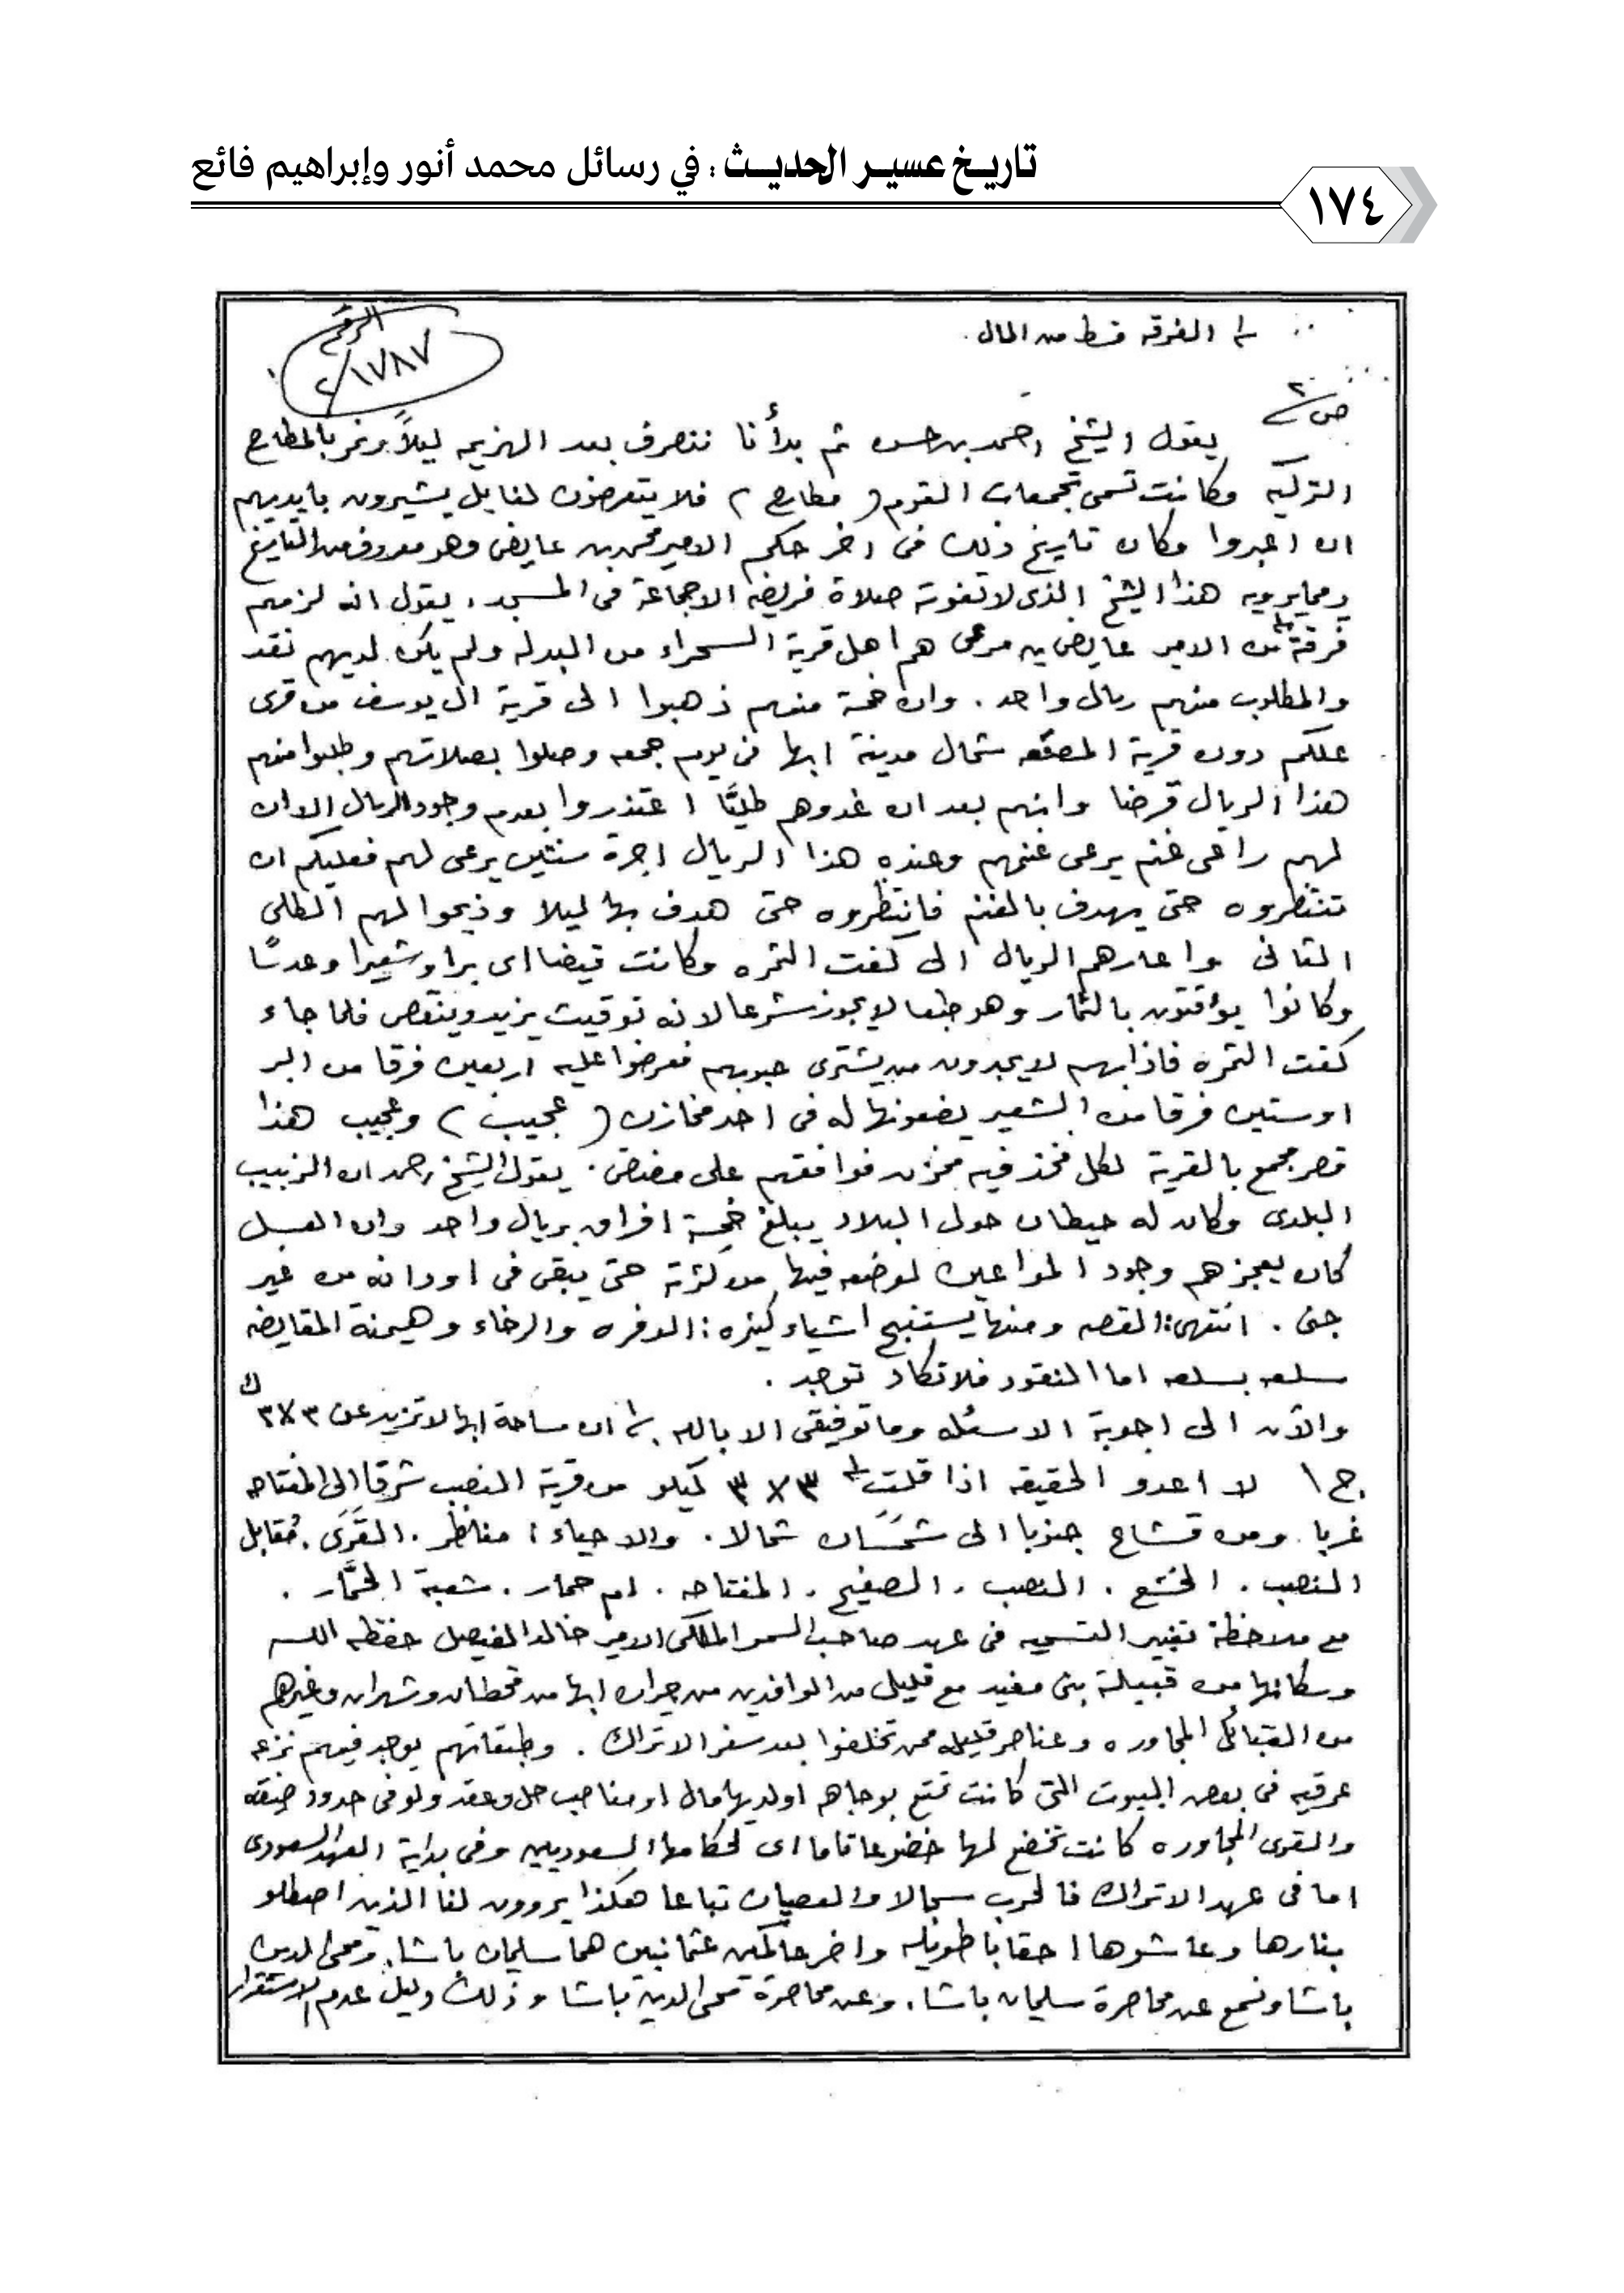 تاريخ عسير الحديث : في رسائل محمد أنور وإبراهيم فائع
١٧٤
الرقم
٢/١٧٨٧
١/ الفرقه قسط من المال .
ص ٢
يقول الشيخ احمد بن حسن ثم بدأنا ننصرف بعد الهزيمه ليلاً ونمر بالمطارح
التركيه وكانت تسمى تجمعات القوم ( مطارح ) فلا يتعرضون لنا بل يشيرون بايديهم
ان اعبروا وكان تاريخ ذلك فى اخر حكم الامير محمد بن عايض وهو معروف من التاريخ
ومما يرويه هذا الشيخ الذى لا تفوته صلاة فريضه الا جماعة فى المسجد . يقول انه لزمهم
فرقة١ من الامير عايض بن مرعى هم اهل قرية السحراء من البدله ولم يكن لديهم نقد
والمطلوب منهم ريال واحد . وان خمسة منهم ذهبوا الى قرية ال يوسف من قرى
علكم دون قرية المصقعه شمال مدينة ابها فى يوم جمعه وصلوا بصلاتهم وطلبوا منهم
هذا الريال قرضا وانهم بعد ان غدوهم طليًّا اعتذروا بعدم وجود الريال الا ان
لهم راعى غنم يرعى غنمهم وعنده هذا الريال اجرة سنتين يرعى لهم فعليكم ان
تنتظروه حتى يهدف بالغنم فانتظروه حتى هدف بها ليلا وذبحوا لهم الطلى
الثانى واعارهم الريال الى كفت الثمره وكانت قيضا اى برا وشعيرا وعدسًا
وكانوا يؤقتون بالثمار وهو طبعا لا يجوز شرعا لانه توقيت يزيد وينقص فلما جاء
كفت الثمره فاذا بهم لا يجدون من يشترى حبوبهم فعرضوا عليه اربعين فرقا من البر
او ستين فرقا من الشعير يضعونها له فى احد مخازن ( عجيب ) وعجيب هذا
قصر مجمع بالقرية لكل فخذ فيه مخزن فوافقهم على مضض . يقول الشيخ احمد ان الزبيب
البلدى وكان له حيطان حول البلاد يبلغ خمسة افراق بريال واحد وان العسل
كان يعجزهم وجود المواعين لوضعه فيها من كثرته حتى يبقى فى اودانه من غير
جنى . انتهى القصه ومنها يستنبح اشياء كثيره : الوفره والرخاء وهيمنة المقايضه
سلعه بسلعه اما النقود فلا تكاد توجد .
والآن الى اجوبة الاسئله وما توفيقى الا بالله . ١/ ان مساحة ابها لا تزيد عن ٣×٣ ك
ج ١ لا اعدو الحقيقه اذا قلت ١ ٣×٣ كيلو من قرية النصب شرقا الى المفتاحه
غربا . ومن قشاع جنوبا الى شمسان شمالا . والاحياء : مناظر . القرى . مقابل
النصب . الخشع . النصب . الصفيح . المفتاحه . ام حمار . شعبة الحمَّار .
مع ملاحظة تغيير التسميه فى عهد صاحب السمو الملكى الامير خالد الفيصل حفظه الله
وسكانها من قبيلة بنى مغيد مع قليل من الوافدين من جيران ابها من قحطان وشهران وغيرهم
من القبائل المجاوره وعناصر قليله ممن تخلفوا بعد سفر الاتراك . وطبقاتهم يوجد فيهم نزعه
عرقيه فى بعض البيوت التى كانت تمتع بوجاهه او لديها مال او مناصب حل وعقد ولو فى حدود ضيقه
والقرى المجاوره كانت تخضع لها خضوعا تاما اى لحكامها السعوديين وفى بداية العهد السعودى
اما فى عهد الاتراك فالحرب سجالا والعصيان تباعا هكذا يروون لنا الذين اصطلو
بنارها وعاشوها احقابا طويله واخر حاكمين عثمانيين هما سليمان باشا . ومحى الدين
باشا ونسمع عن محاصرة سليمان باشا . وعن محاصرة محى الدين باشا وذلك دليل عدم الاستقرار